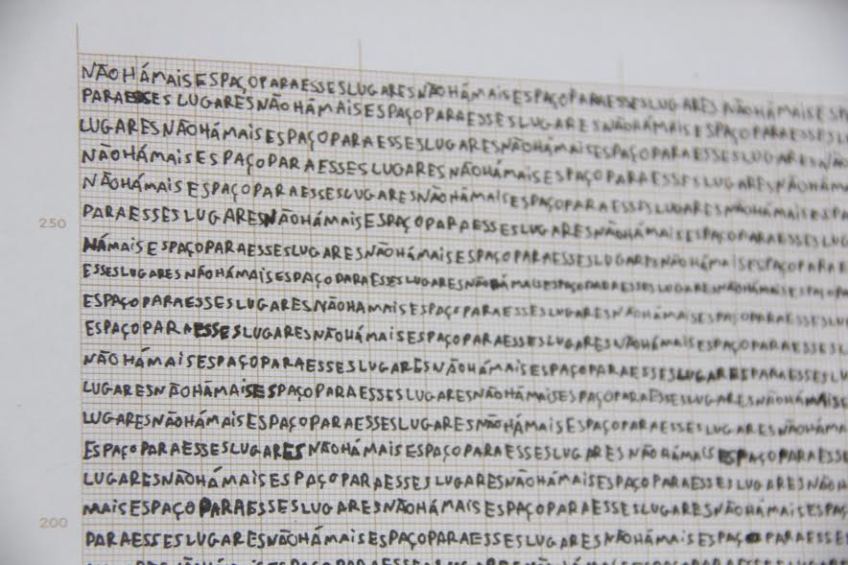 NÃOHÁMAISESPAÇOPARAESSESLUGARESNÃOHÁMAISESPAÇOPARAESSESLUGARES NÃOHÁMAISESP
PARAESSES LUGARESNÃOHÁMAISESPAÇOPARAESSESLUGARESNÃOHÁMAISESPAÇOPARAESSESL
LUGARESNÃOHÁMAISESPAÇOPARAESSESLUGARESNÃOHÁMAISESPAÇOPARAESSESLUGARES
NÃOHÁMAISESPAÇOPARAESSESLUGARESNÃOHÁMAISESPAÇOPARAESSESLUGARESNÃOHÁMA
NÃOHÁMAISESPAÇOPARAESSESLUGARESNÃOHÁMAISESPAÇOPARAESSESLUGARESNÃOHÁMAISESPA
250
PARAESSESLUGARESNÃOHÁMAISESPAÇOPARAESSESLUGARESNÃOHÁMAISESPAÇOPARAESSESLUG
HÁMAISESPAÇOPARAESSESLUGARESNÃOHÁMAISESPAÇOPARAESSESLUGARESNÃOHÁMAISESPAÇOPARAE
ESSESLUGARESNÃOHÁMAISESPAÇOPARAESSESLUGARESNÃOHÁMAISESPAÇOPARAESSESLUGARESNÃOHÁMAISESPAÇOPAR
ESPAÇOPARAESSESLUGARESNÃOHAMAISESPAÇOPARAESSESLUGARESNÃOHÁMAISESPAÇOPARAESSESLU
ESPAÇOPARAESSESLUGARESNÃOHÁMAISESPAÇOPARAESSESLUGARESNÃOHÁMAISESPAÇOPARAESSESL
NÃOHÁMAISESPAÇOPARAESSESLUGARESNÃOHÁMAISESPAÇOPARAESSESLUGARESPARAESSESLU
LUGARESNÃOHÃMAISESPAÇOPARAESSESLUGARESNÃOHÁMAISESPAÇOPARAESSESLUGARESNÃOHÁMAISE
LUGARESNÃOHÁMAISESPAÇOPARAESSESLUGARESNÃOHÁMAISESPAÇOPARAESSESLUGARESNÃOHÁMA
ESPAÇOPARAESSESLUGARESNÃOHÁMAISESPAÇOPARAESSESLUGARESNÃOHÁMAISESPAÇOPARAESS
LUGARESNÃOHÁMAISESPAÇOPARAESSESLUGARESNÃOHÁMAISESPAÇOPARAESSESLUGARESNÃOH
MAISESPAÇOPARAESSESLUGARESNÃOHÁMAISESPAÇOPARAESSESLUGARESNÃOHÁMAISESPA
200
PARAESSESLUGARESNÃOHÁMAISESPAÇOPARAESSESLUGARESNÃOHÁMAISESPAÇOPARAESSE